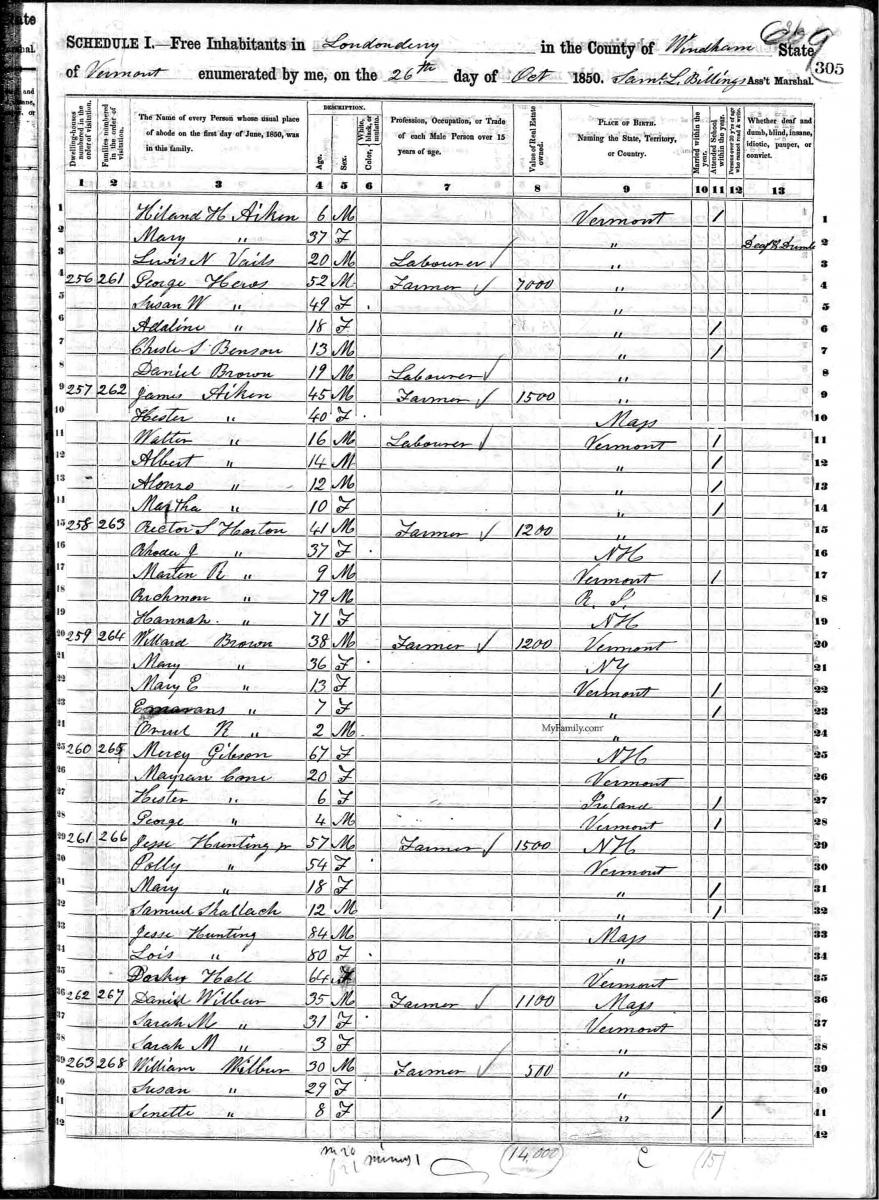 SCHEDULE I.—Free Inhabitants in Londonderry in the County of Windham State
of Vermont enumerated by me, on the 26th day of Oct 1850. Saml. L. Billings Ass't Marshal.
305
Dwelling-houses numbered in the order of visitation.
Families numbered in the order of visitation.
The Name of every Person whose usual place of abode on the first day of June, 1850, was in this family.
DESCRIPTION.
Age.
Sex.
Color, White, black, or mulatto.
Profession, Occupation, or Trade of each Male Person over 15 years of age.
Value of Real Estate owned.
PLACE OF BIRTH. Naming the State, Territory, or Country.
Married within the year.
Attended School within the year.
Persons over 20 y'rs of age who cannot read & write.
Whether deaf and dumb, blind, insane, idiotic, pauper, or convict.
1 2 3 4 5 6 7 8 9 10 11 12 13
1 Hiland H Aiken 6 M Vermont / 1
2 Mary " 37 F " Deaf & Dumb 2
3 Lewis N Vails 20 M Labourer ✓ " 3
4 256 261 George Hews 52 M Farmer ✓ 7000 " 4
5 Susan W " 49 F " 5
6 Adaline " 18 F " / 6
7 S Benson 13 M " / 7
8 Daniel Brown 19 M Labourer ✓ " 8
9 257 262 James Aiken 45 M Farmer ✓ 1500 " 9
10 Hester " 40 F Mass 10
11 Walter " 16 M Labourer ✓ Vermont / 11
12 Albert " 14 M " / 12
13 Alonzo " 12 M " / 13
14 Martha " 10 F " / 14
15 258 263 Rector S Horton 41 M Farmer ✓ 1200 " 15
16 Rhoda J " 37 F NH 16
17 Marten R " 9 M Vermont / 17
18 Richmon " 79 M R. I. 18
19 Hannah " 71 F NH 19
20 259 264 Willard Brown 38 M Farmer ✓ 1200 Vermont 20
21 Mary " 36 F NY 21
22 Mary E " 13 F Vermont / 22
23 " 7 F " / 23
24 R " 2 M " 24
MyFamily.com
25 260 265 Mercy Gibson 67 F NH 25
26 Cone 20 F Vermont 26
27 Hester " 6 F Ireland / 27
28 George " 4 M Vermont / 28
29 261 266 Jesse Hunting jr 57 M Farmer ✓ 1500 NH 29
30 Polly " 54 F Vermont 30
31 Mary " 18 F " / 31
32 Samuel Shallach 12 M " / 32
33 Jesse Hunting 84 M Mass 33
34 Lois " 80 F " 34
35 Hall 64 Vermont 35
36 262 267 Daniel Wilbur 35 M Farmer ✓ 1100 Mass 36
37 Sarah M " 31 F Vermont 37
38 Sarah M " 3 F " 38
39 263 268 William Wilbur 30 M Farmer ✓ 500 " 39
40 Susan " 29 F " 40
41 Senette " 8 F " / 41
42 42
m 20 minus 1 (14,000) (15)
f 21